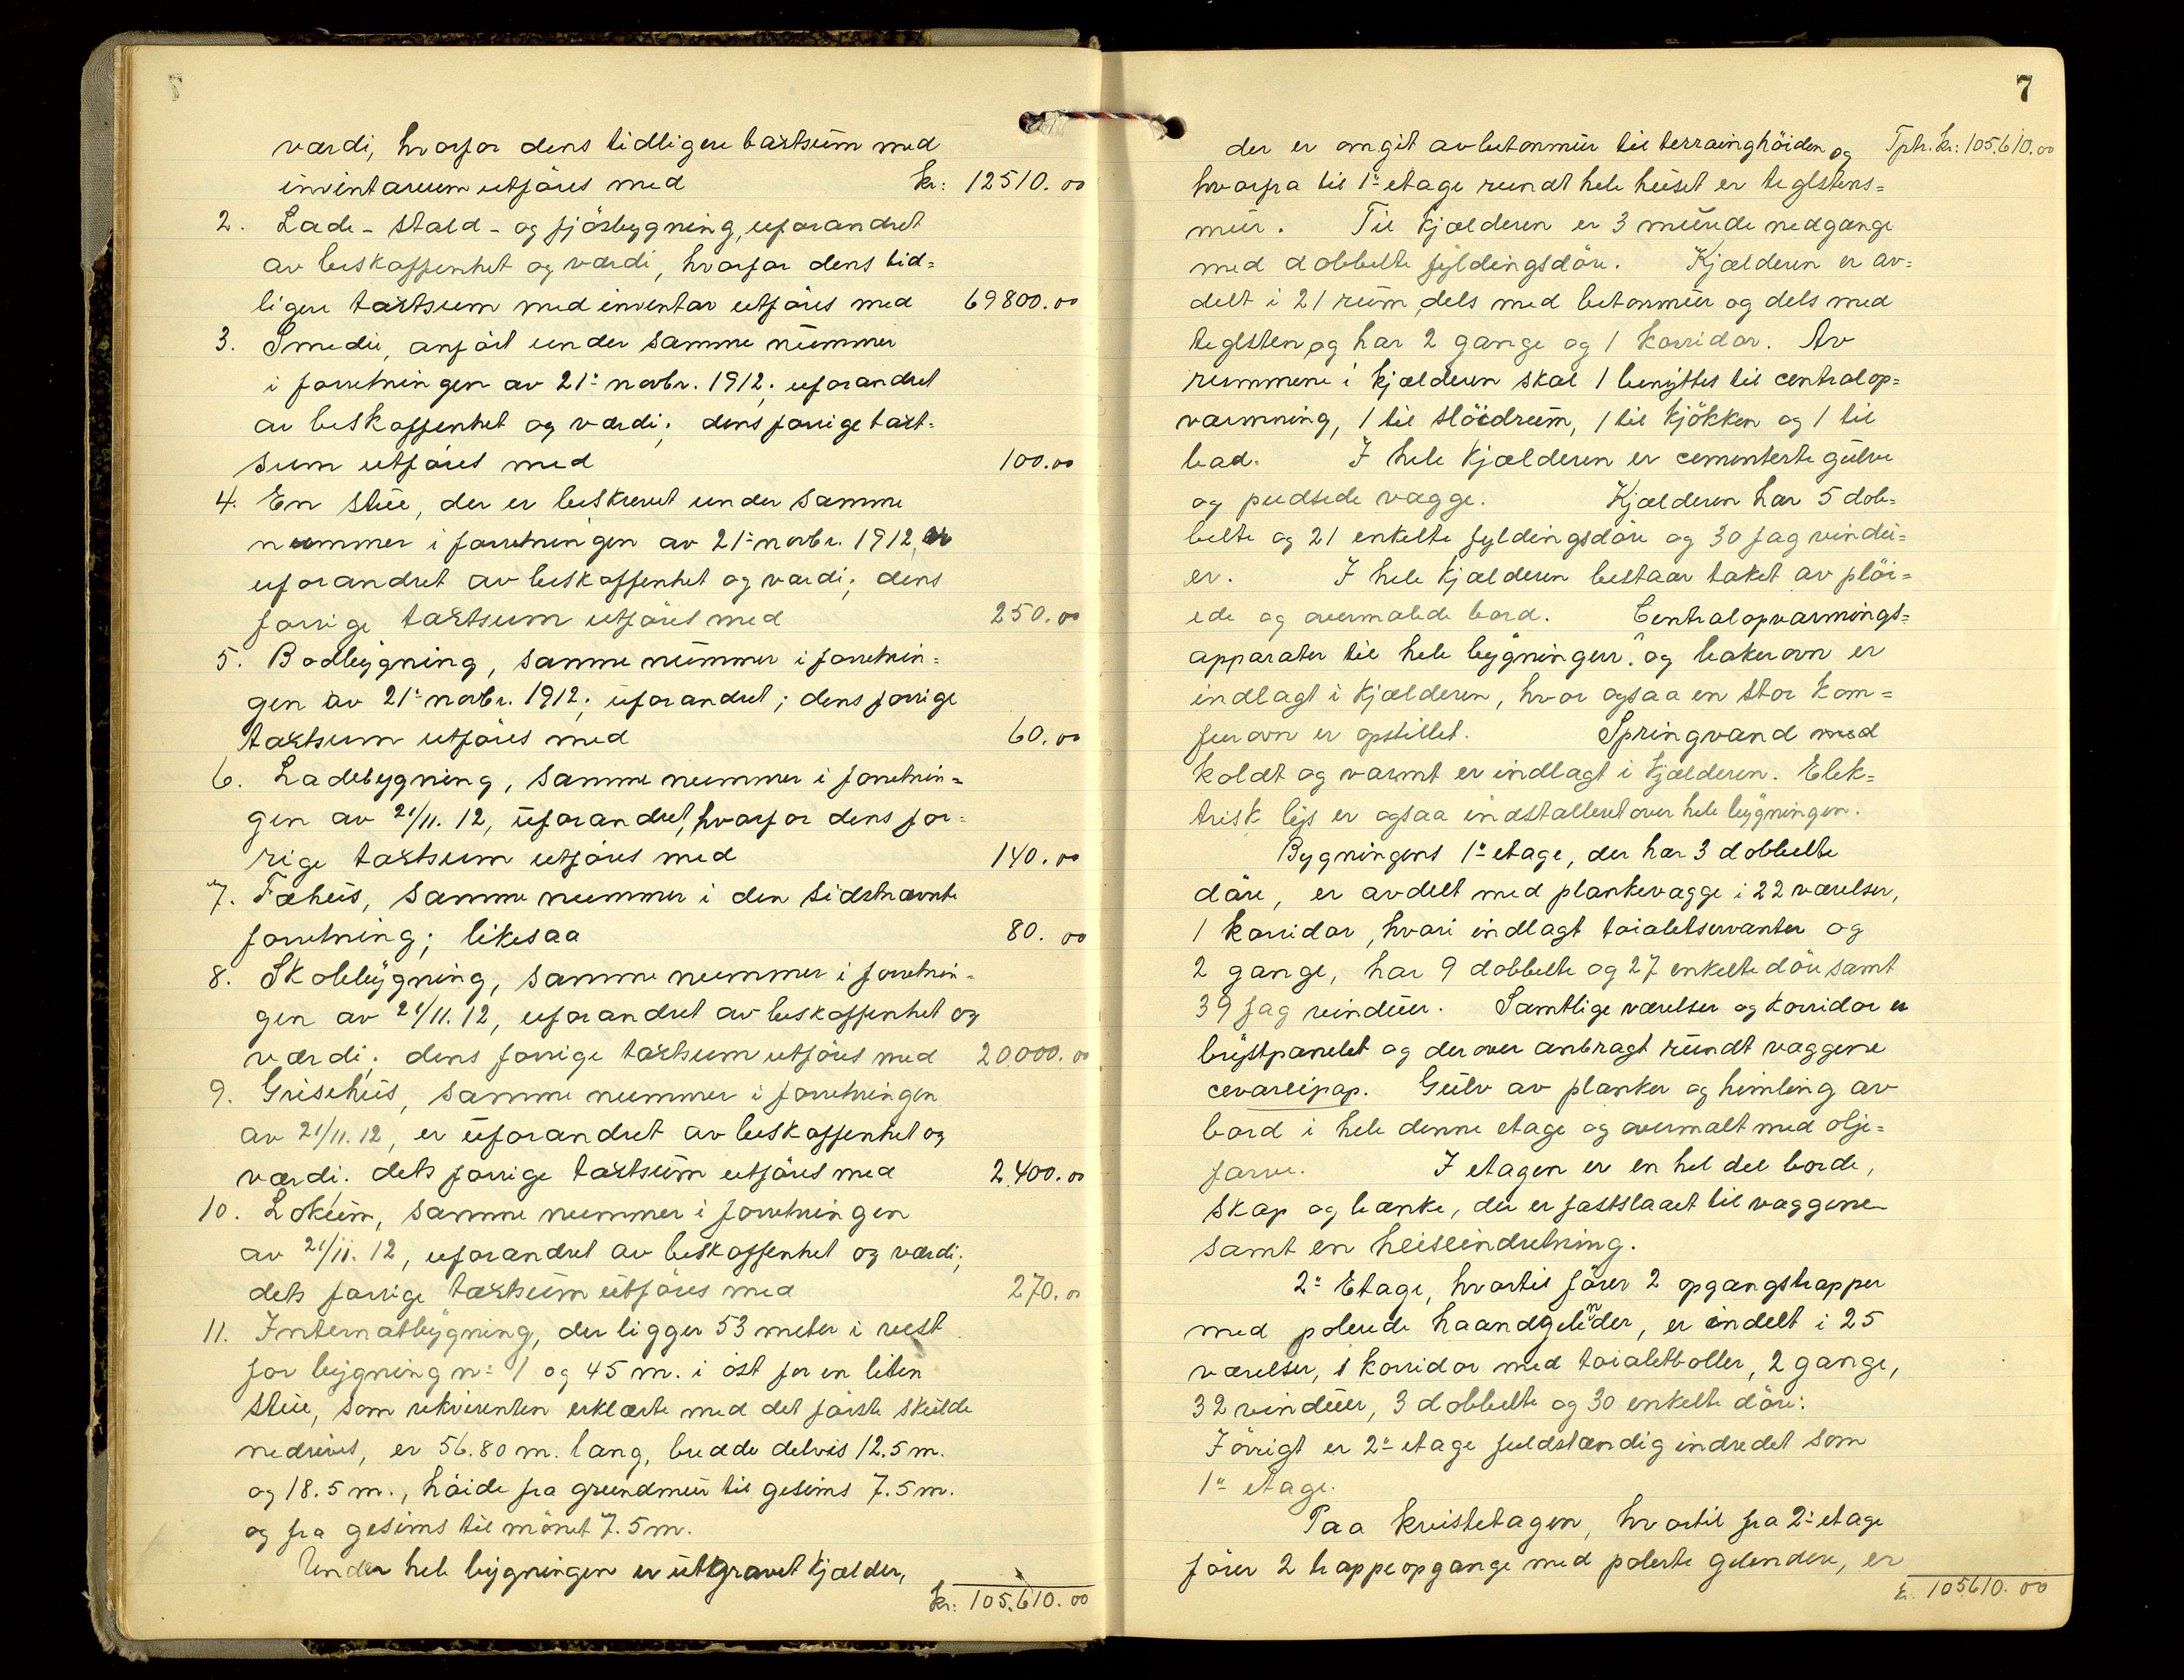 værdi, hvorfor dens tidligere taxtsum med
inventarium utføres med kr: 12510.00
2. Lade- stald- og fjøsbygning, uforandret
av beskaffenhet og værdi, hvorfor dens tid=
ligere taxtsum med inventar utføres med 69800.00
3. Smedie, anført under samme nummer
i forretningen av 21: novbr. 1912; uforandret
av beskaffenhet og værdi; dens forrige taxt=
sum utføres med 100.00
4. En stue, der er beskrevet under samme
nummer i forretningen av 21: novbr. 1912, er
uforandret av beskaffenhet og værdi; dens
forrige taxtsum utføres med 250.00
5. Bodbygning, samme nummer i forretnin=
gen av 21: novbr. 1912; uforandret; dens forrige
taxtsum utføres med 60.00
6. Ladebygning, samme nummer i forretnin=
gen av 21/11. 12, uforandret, hvorfor dens for=
rige taxtsum utføres med 140.00
7. Fæhus, samme nummer i den sidstnævnte
forretning; likesaa 80.00
8. Skolebygning, samme nummer i forretnin=
gen av 21/11. 12, uforandret av beskaffenhet og
værdi; dens forrige taxtsum utføres med 20.000.00
9. Grisehus, samme nummer i forretningen
av 21/11. 12, er uforandret av beskaffenhet og
værdi. dets forrige taxtsum utføres med 2.400.00
10. Lokum, samme nummer i forretningen
av 21/11. 12, uforandret av beskaffenhet og værdi;
dets forrige taxtsum utføres med 270.00
11. Internatbygning, der ligger 53 meter i vest
for bygning n: 1 og 45 m. i øst for en liten
stue, som rekvirenten erklærte med det første skulde
nedrives, er 56.80 m. lang, bredde delvis 12.5 m.
og 18.5 m., høide fra grundmur til gesims 7.5 m.
og fra gesims til mønet 7.5 m.
Under hele bygningen er utgravet kjælder,
kr: 105.610.00
7
der er omgit av betonmur til terrainghøiden og Tptr. kr: 105.610.00
hvorfra til 1ste etage rundt hele huset er teglstens=
mur. Til kjælderen er 3 murede nedgange
med dobbelte fyldingsdøre. Kjælderen er av=
delt i 21 rum, dels med betonmur og dels med
teglsten og har 2 gange og 1 korridor. Av
rummene i kjælderen skal 1 benyttes til centralop=
varmning, 1 til sløidrum, 1 til kjøkken og 1 til
bad. I hele kjælderen er cementerte gulve
og pudsede vægge. Kjælderen har 5 dob=
belte og 21 enkelte fyldingsdøre og 30 fag vindu=
er. I hele kjælderen bestaar taket av pløi=
ede og overmalede bord. Centralopvarmings=
apparater til hele bygningen og bakerovn er
indlagt i kjælderen, hvor ogsaa en stor kom=
furovn er opstillet. Springvand med
koldt og varmt er indlagt i kjælderen. Elek=
trisk lys er ogsaa indstalleret over hele bygningen.
Bygningens 1ste etage, der har 3 dobbelte
døre, er avdelt med plankevægge i 22 værelser,
1 korridor, hvori indlagt toialetservanter og
2 gange, har 9 dobbelte og 27 enkelte døre samt
39 fag vinduer. Samtlige værelser og korridor er
brystpanelet og derover anbragt rundt væggene
cevareipap. Gulv av planker og himling av
bord i hele denne etage og overmalt med olje=
farve. I etagen er en hel del borde,
skap og bænke, der er fastslaaet til væggene
samt en heiseindretning.
2: Etage, hvortil fører 2 opgangstrapper
med polerede haandgelender, er indelt i 25
værelser, 1 korridor med toialetboller, 2 gange,
32 vinduer, 3 dobbelte og 30 enkelte døre.
Iøvrigt er 2: etage fuldstændig indredet som
1ste etage.
Paa kvistetagen, hvortil fra 2: etage
fører 2 trappeopgange med polerte gelendere, er
kr. 105610.00